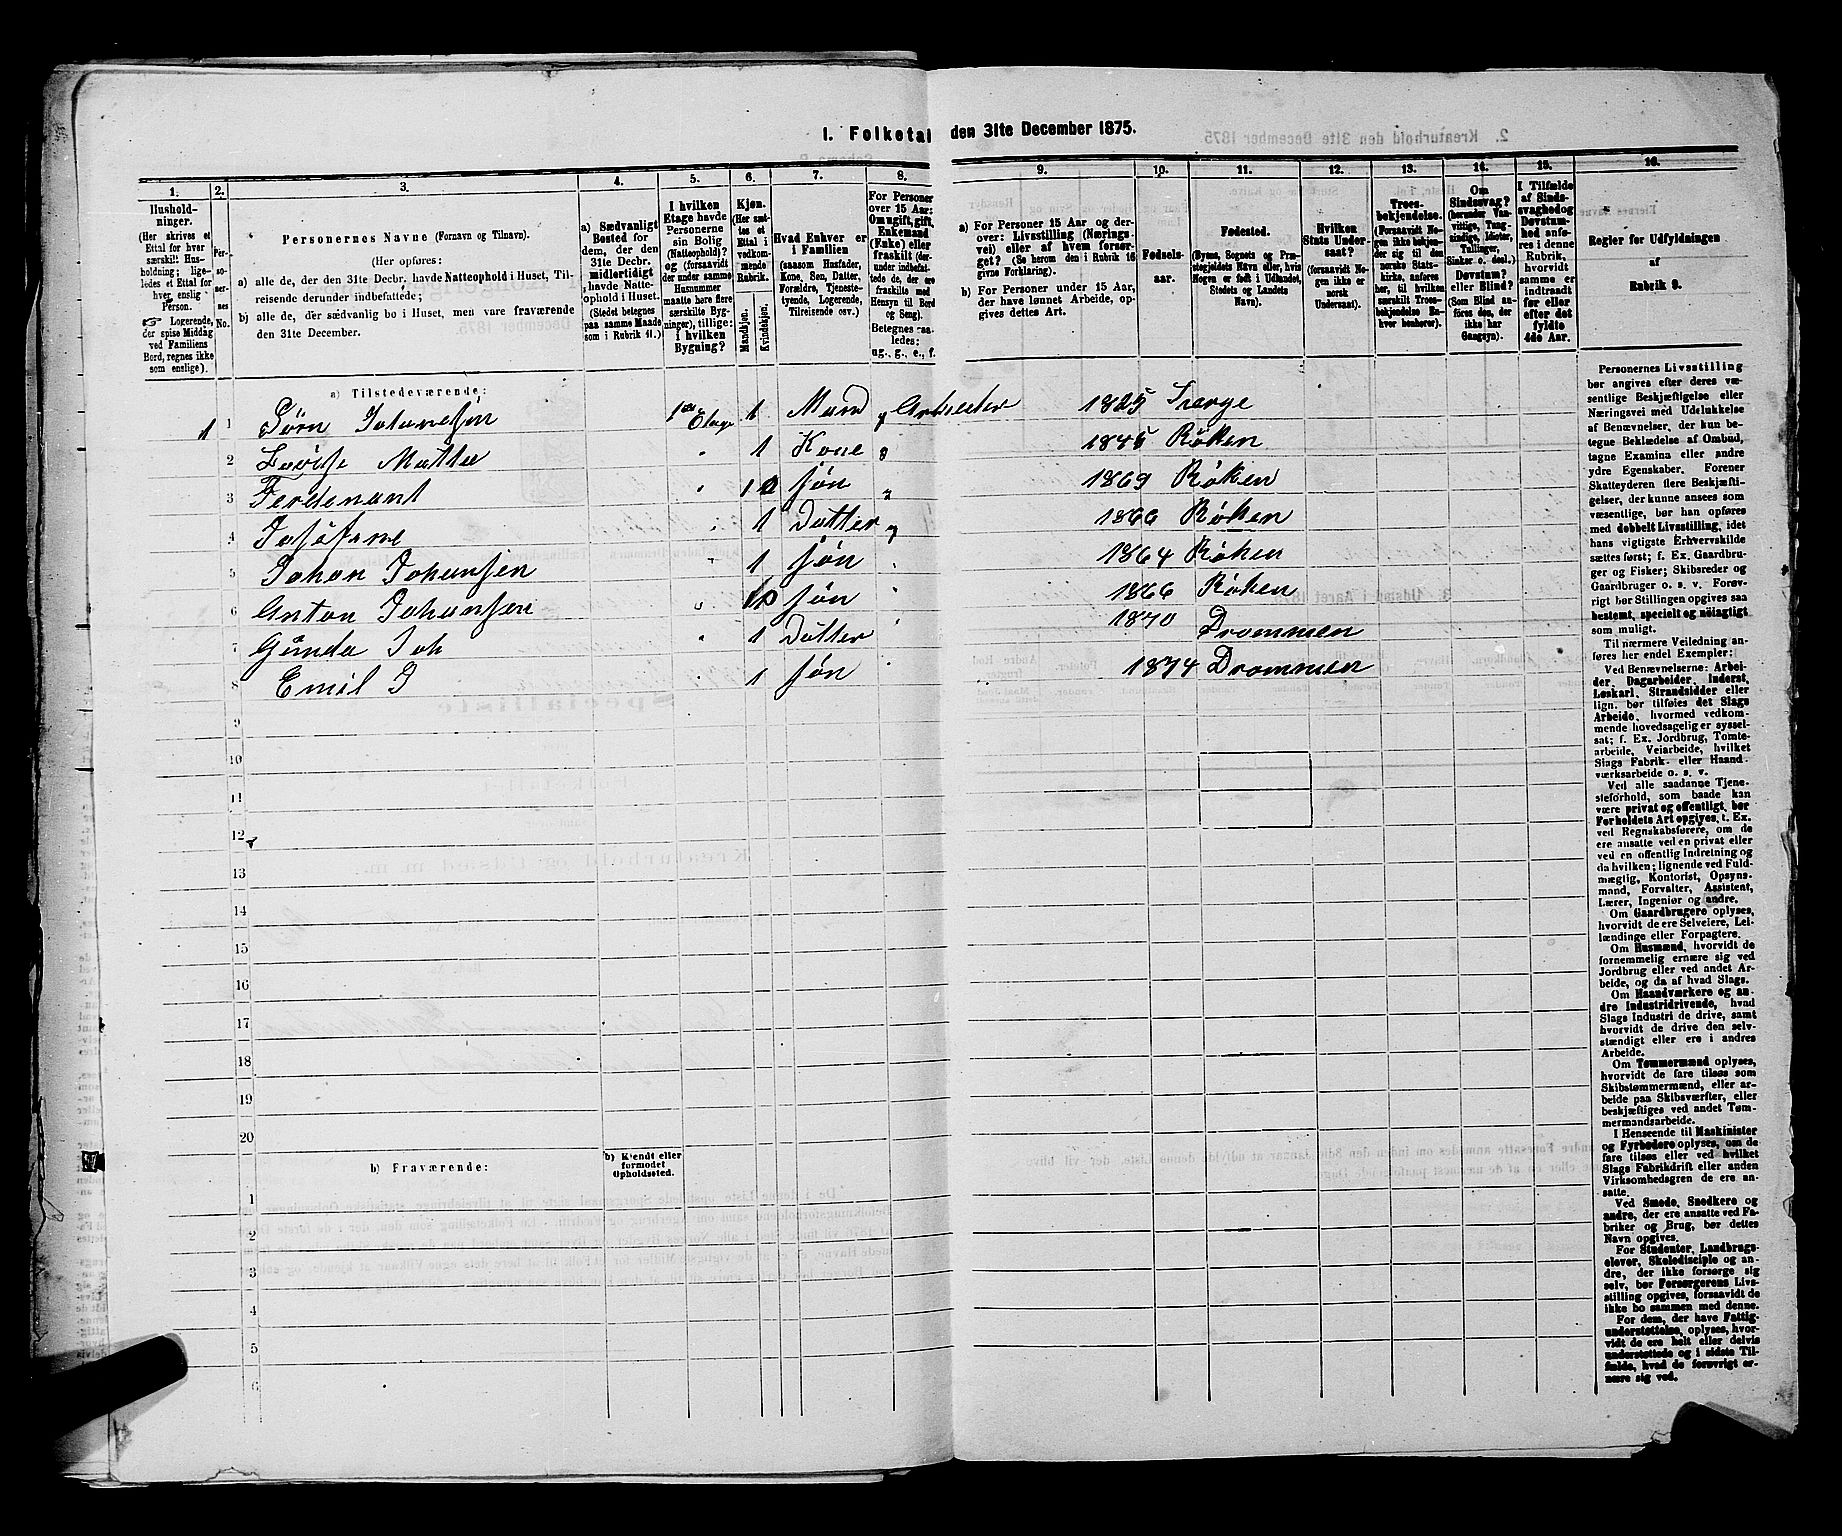 1. Folketal den 31te December 1875.
1.
2.
3.
4.
5.
6.
7.
8.
9.
10.
11.
12.
13.
14.
15.
16.
Husholdninger.
(Her skrives et
Ettal for hver
særskilt Husholdning;
ligeledes et Ettal for
hver enslig
Person.
☞ Logerende,
der spise Middag
ved Familiens
Bord, regnes ikke
som enslige).
Personernes No.
Personernes Navne (Fornavn og Tilnavn).
(Her opføres:
a) alle de, der den 31te Decbr. havde Natteophold i Huset, Tilreisende derunder indbefattede;
b) alle de, der sædvanlig bo i Huset, men vare fraværende
den 31te December.
a) Sædvanligt
Bosted for
dem, der den
31te Decbr.
midlertidigt
havde Natteophold i Huset.
(Stedet betegnes
paa samme Maade
som i Rubrik 11.)
I hvilken
Etage havde
Personerne
sin Bolig
(Natteophold)?
og (forsaavidt
der under samme
Husnummer
maatte høre flere
særskilte Bygninger), tillige:
i hvilken
Bygning?
Kjøn.
(Her sættes et
Ettal i
vedkommende
Rubrik.
Mandkjøn.
Kvindekjøn.
Hvad Enhver er
i Familien
(saasom Husfader,
Kone, Søn, Datter,
Forældre, Tjenestetyende, Logerende,
Tilreisende osv.)
For Personer
over 15 Aar:
Om ugift, gift,
Enkemand
(Enke) eller
fraskilt
Betegnes saaledes:
ug., g., e., f.
a) For Personer 15 Aar og derover: Livsstilling (Næringsvei) eller af hvem forsørget? (Se herom den i Rubrik 16
givne Forklaring).
b) For Personer under 15 Aar,
der have lønnet Arbeide, opgives dettes Art.
Fødselsaar.
Fødested.
(Byens, Sognets og Præstegjeldets Navn eller, hvis
Nogen er født i Udlandet,
Stedets og Landets
Navn).
Hvilken
Stats Undersaat?
(forsaavidt Nogen ikke er
norsk
Undersaat).
Troesbekjendelse.
(Forsaavidt Nogen ikke bekjender sig til den
norske Statskirke, anføres
her, til hvilken
særskilt Troesbekjendelse Enhver henhører).
Om
Sindssvag?
(herunder Vanvittige, Tungsindige, Idioter,
Tullinger,
Sinker o. desl.)
Døvstum?
eller Blind?
(Som Blind anføres den, der
ikke har
Gangsyn).
I Tilfælde
af Sindssvaghed og
Døvstumhed anføres i denne
Rubrik,
hvorvidt
samme er
indtraadt
før eller
efter det
fyldte
4de Aar.
Regler for Udfyldningen
af
Rubrik 9.
a) Tilstedeværende:
1 1 Jørn Johanesen 1ste Etage 1 Mand g Arbeider 1825 Sverge
2 Lovise Mattea " 1 Kone g 1845 Røken
3 Ferdenant " 1 søn " 1869 Røken
4 Josefine " 1 Datter " 1866 Røken
5 Johan Johansen " 1 søn " 1864 Røken
6 Anton Johansen " 1 søn " 1866 Røken
7 Gunda Joh " 1 Datter " 1870 Drammen
8 Emil J 1 søn " 1874 Drammen
9
10
11
12
13
14
15
16
17
18
19
20
b) Fraværende:
b) Kjendt eller
formodet
Opholdssted.
1
2
3
4
5
6
Personernes Livsstilling
bør angives efter deres væsentlige Beskjæftigelse eller
Næringsvei med Udelukkelse
af Benævnelser, der kun betegne Beklædelse af Ombud,
tagne Examina eller andre
ydre Egenskaber. Forener
Skatteyderen flere Beskjæftigelser, der kunne ansees som
væsentlige, bør han opføres
med dobbelt Livsstilling, idet
hans vigtigste Erhvervskilde
sættes først; f. Ex. Gaardbruger og Fisker; Skibsreder og
Gaardbruger o. s. v. Forøvrigt bør Stillingen opgives saa
bestemt, specielt og nöiagtigt
som muligt.
Til nærmere Veiledning anføres her endel Exempler:
Ved Benævnelserne: Arbeider, Dagarbeider, Inderst,
Løskarl, Strandsidder eller
lign. bør tilføies det Slags
Arbeide, hvormed vedkommende hovedsagelig er sysselsat; f. Ex. Jordbrug, Tomtearbeide, Veiarbeide, hvilket
Slags Fabrik- eller Haandværksarbeide o. s. v.
Ved alle saadanne Tjenesteforhold, som baade kan
være privat og offentligt, bør
Forholdets Art opgives, t. Ex.
ved Regnskabsførere, om de
ere ansatte ved en privat eller
ved en offentlig Indretning og
da hvilken; lignende ved Fuldmægtig, Kontorist, Opsynsmand, Forvalter, Assistent,
Lærer, Ingeniør og andre.
Om Gaardbrugere oplyses,
hvorvidt de ere Selveiere, Leilændinge eller Forpagtere.
Om Husmænd, hvorvidt de
fornemmelig ernære sig ved
Jordbrug eller ved andet Arbeide, og da af hvad Slags.
Om Haandværkere og andre Industridrivende, hvad
Slags Industri de drive, samt
hvorvidt de drive den selvstændigt eller ere i andres
Arbeide.
Om Tømmermænd oplyses,
hvorvidt de fare tilsøs som
Skibstømmermænd, eller arbeide paa Skibsværfter, eller
beskjæftiges ved andet Tømmermandsarbeide.
I Henseende til Maskinister
og Fyrbødere oplyses, om de
fare tilsøs eller ved hvilket
Slags Fabrikdrift eller anden
Virksomhedsgren de ere ansatte.
Ved Smede, Snedkere og
andre, der ere ansatte ved Fabriker og Brug, bør dettes
Navn opgives.
For Studenter, Landbrugselever, Skoledisciple og andre, der ikke forsørge sig
selv, bør Forsørgerens Livsstilling opgives, forsaavidt de
ikke bo sammen med denne.
For dem, der have Fattigunderstøttelse, oplyses, hvorvidt de ere helt eller delvis
understøttede og i sidste Tilfælde, hvad de forøvrigt ernære sig ved.